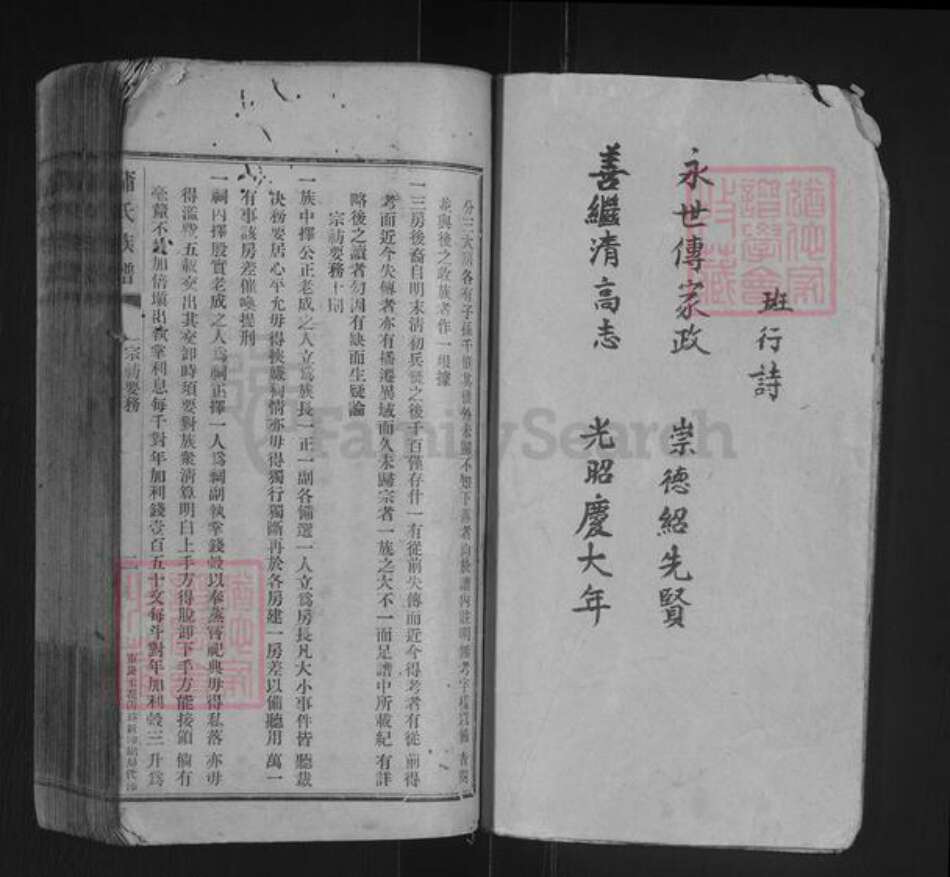 班行詩
永世傳家政 崇德紹先賢
善繼清高志 光昭慶大年
分三大房各有子孫千
並與後之收族者作一根據
一三房後裔自明末清初兵燹之後千百僅存什一有從前失傳而近今得考者有從前得
考而近今失傳者亦有播遷異域而久未歸宗者一族之大不一而足譜中所載紀有詳
略後之讀者勿因有缺而生疑論
宗祠要務十則
一族中擇公正老成之人立為族長一正一副各備選一人立為房長凡大小事件皆聽裁
決務要居心平允毋得挾嫌徇情亦毋得獨行獨斷再於各房建一房差以備聽用萬一
有事該房差催喚提刑
一祠內擇殷實老成之人為祠正擇一人為祠副執掌錢穀以奉蒸嘗祀典毋得私落亦毋
得濫費五載交出其交卸時須要對族衆清算明白上手方得脫卸下手方能接領倘有
毫釐不清加倍填出執掌利息每千對年加利錢壹百五十文每斗對年加利穀三升為
蒲氏族譜
宗祠要務
一
FamilySearch